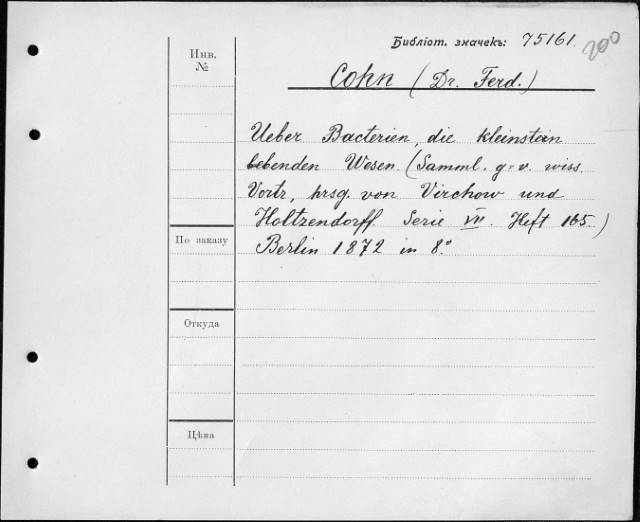 Библіот. значекъ: 75161. 200
Инв.
№
Cohn (Dr. Ferd.)
Ueber Bacterien, die kleinsten
lebenden Wesen (Samml. g. v. wiss.
Vortr, hrsg. von Virchow und
Holtzendorff. Serie VII. Heft 165.)
По заказу
Berlin 1872 in 8°
Откуда
Цѣна